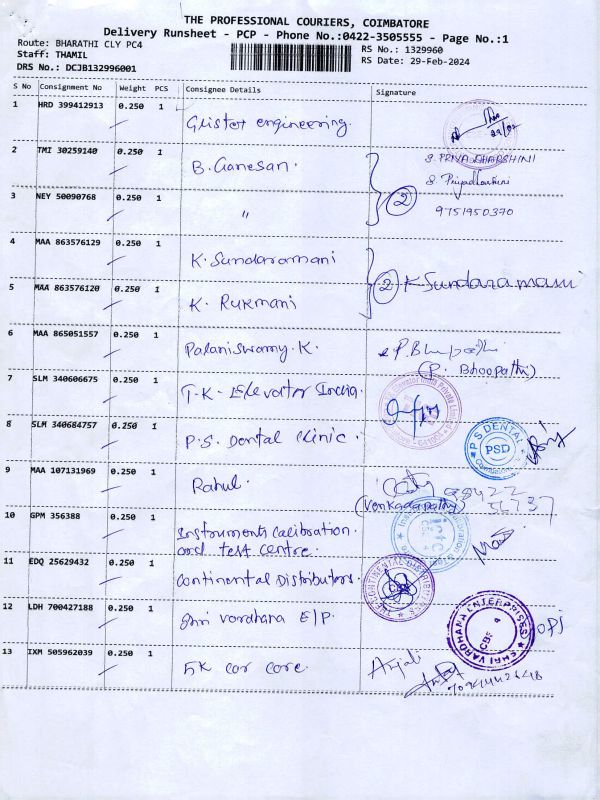 THE PROFESSIONAL COURIERS, COIMBATORE
Delivery Runsheet - PCP - Phone No.:0422-3505555 - Page No.:1
Route: BHARATHI CLY PC4
Staff: THAMIL
DRS No.: DCJB132996001
RS No.: 1329960
RS Date: 29-Feb-2024
S No Consignment No Weight PCS Consignee Details Signature
1 HRD 399412913 0.250 1
Glister engineering.
2 TMI 30259140 0.250 1
B. Ganesan.
S. PRIYA DHARSHINI
S. Priyadharshini
3 NEY 50090768 0.250 1
" 2 9751950370
4 MAA 863576129 0.250 1
K. Sundaramani
5 MAA 863576120 0.250 1
2 K Sundaramani
K. Rukmani
6 MAA 865051557 0.250 1
Palaniswamy. K.
(P. Bhoopathi)
7 SLM 340606675 0.250 1
T.K. Elevator India.
8 SLM 340684757 0.250 1
P.S. Dental clinic.
P S DENTAL
PSD
9 MAA 107131969 0.250 1
Rahul.
(Venkadapathy)
10 GPM 356388 0.250 1
Instruments calibration
and test centre.
ictc
11 EDQ 25629432 0.250 1
Continental Distributors.
CONTINENTAL DISTRIBUTORS
12 LDH 700427188 0.250 1
Shri vardhana E/P.
SHRI VARDHANA ENTERPRISES
CBE
13 IXM 505962039 0.250 1
5K car care.
Anjali